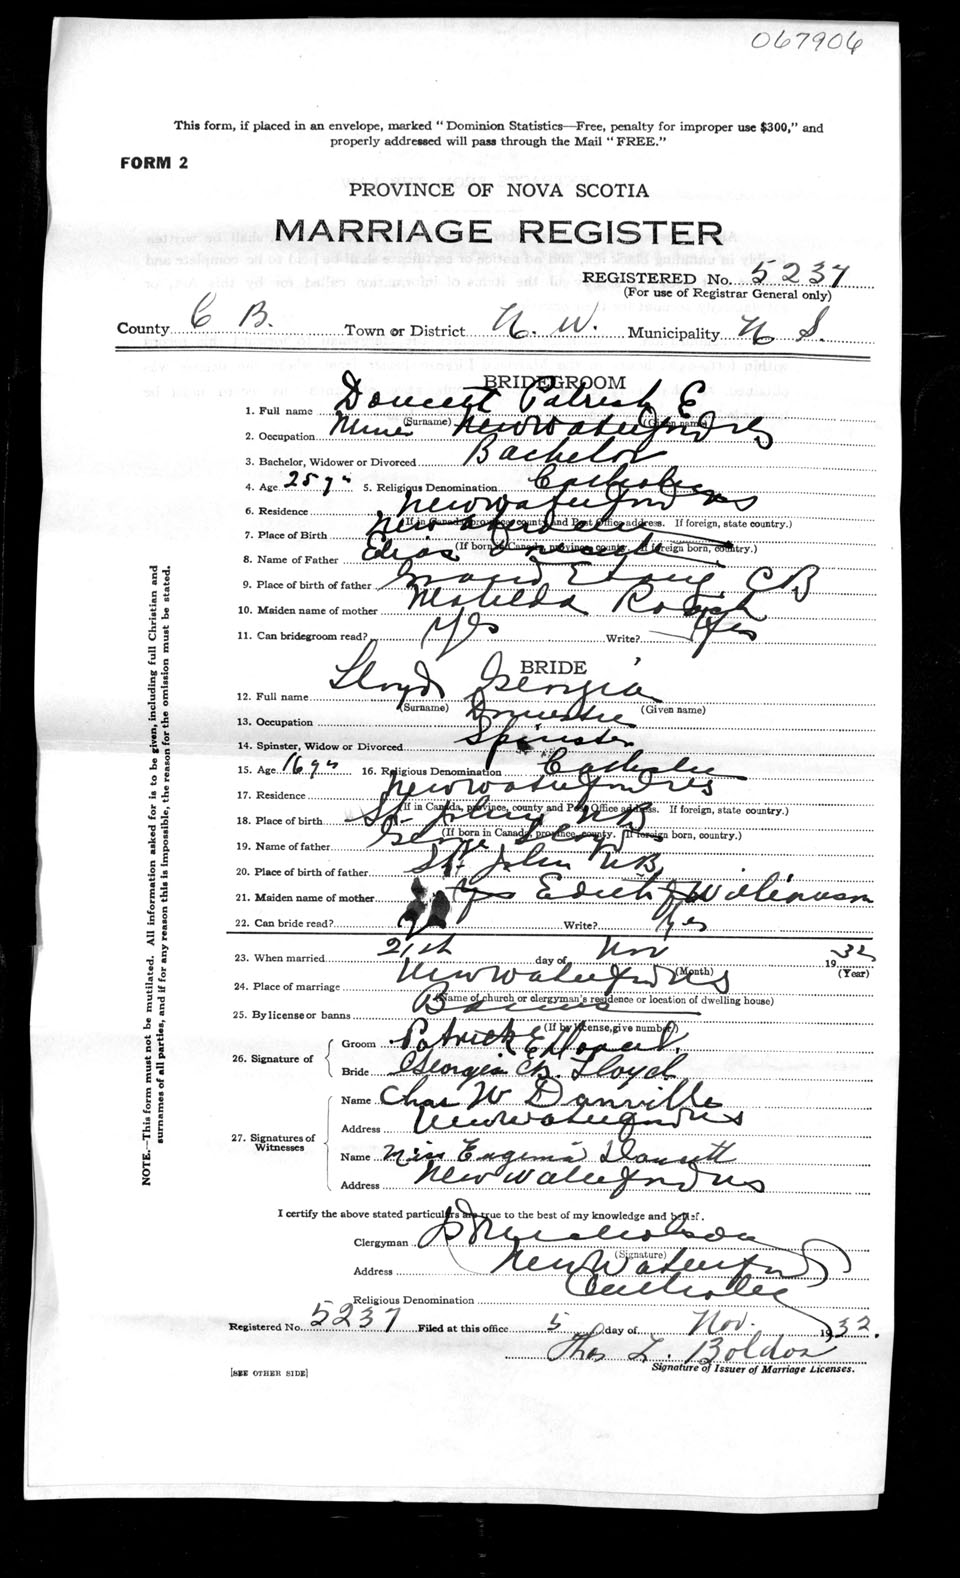 067906
This form, if placed in an envelope, marked “ Dominion Statistics—Free, penalty for improper use $300,” and
properly addressed will pass through the Mail “ FREE.”
FORM 2
PROVINCE OF NOVA SCOTIA
MARRIAGE REGISTER
REGISTERED No. 5237
(For use of Registrar General only)
County C B. Town or District N. W. Municipality N S.
BRIDEGROOM
1. Full name Doucett Patrick E
(Surname) (Given name)
2. Occupation Miner New Waterford NS
3. Bachelor, Widower or Divorced Bachelor
4. Age 25 yrs 5. Religious Denomination Catholic
6. Residence New Waterford NS
(If in Canada, province, county and Post Office address. If foreign, state country.)
7. Place of Birth New Waterford
(If born in Canada, province, county. If foreign born, country.)
8. Name of Father Elias Doucett
9. Place of birth of father Grand Etang CB
10. Maiden name of mother Matilda
11. Can bridegroom read? Yes Write? Yes
BRIDE
12. Full name Lloyd Georgia
(Surname) (Given name)
13. Occupation Domestic
14. Spinster, Widow or Divorced Spinster
15. Age 16 yrs 16. Religious Denomination Catholic
17. Residence New Waterford NS
(If in Canada, province, county and Post Office address. If foreign, state country.)
18. Place of birth St John NB
(If born in Canada, province, county. If foreign born, country.)
19. Name of father George Lloyd
20. Place of birth of father St John NB
21. Maiden name of mother Edith Williamson
22. Can bride read? Yes Write? Yes
23. When married 21st day of Nov 1932
(Month) (Year)
24. Place of marriage New Waterford NS
(Name of church or clergyman's residence or location of dwelling house)
25. By license or banns Banns
(If by license, give number)
26. Signature of
Groom Patrick E Doucett
Bride Georgia B. Lloyd
27. Signatures of Witnesses
Name Chas W Danville
Address New Waterford NS
Name Miss Eugenia Doucett
Address New Waterford NS
I certify the above stated particulars are true to the best of my knowledge and belief.
Clergyman
(Signature)
Address New Waterford
Religious Denomination Catholic
Registered No. 5237 Filed at this office 5 day of Nov. 1932.
Thos L. Boldon
Signature of Issuer of Marriage Licenses.
[SEE OTHER SIDE]
NOTE.—This form must not be mutilated. All information asked for is to be given, including full Christian and
surnames of all parties, and if for any reason this is impossible, the reason for the omission must be stated.